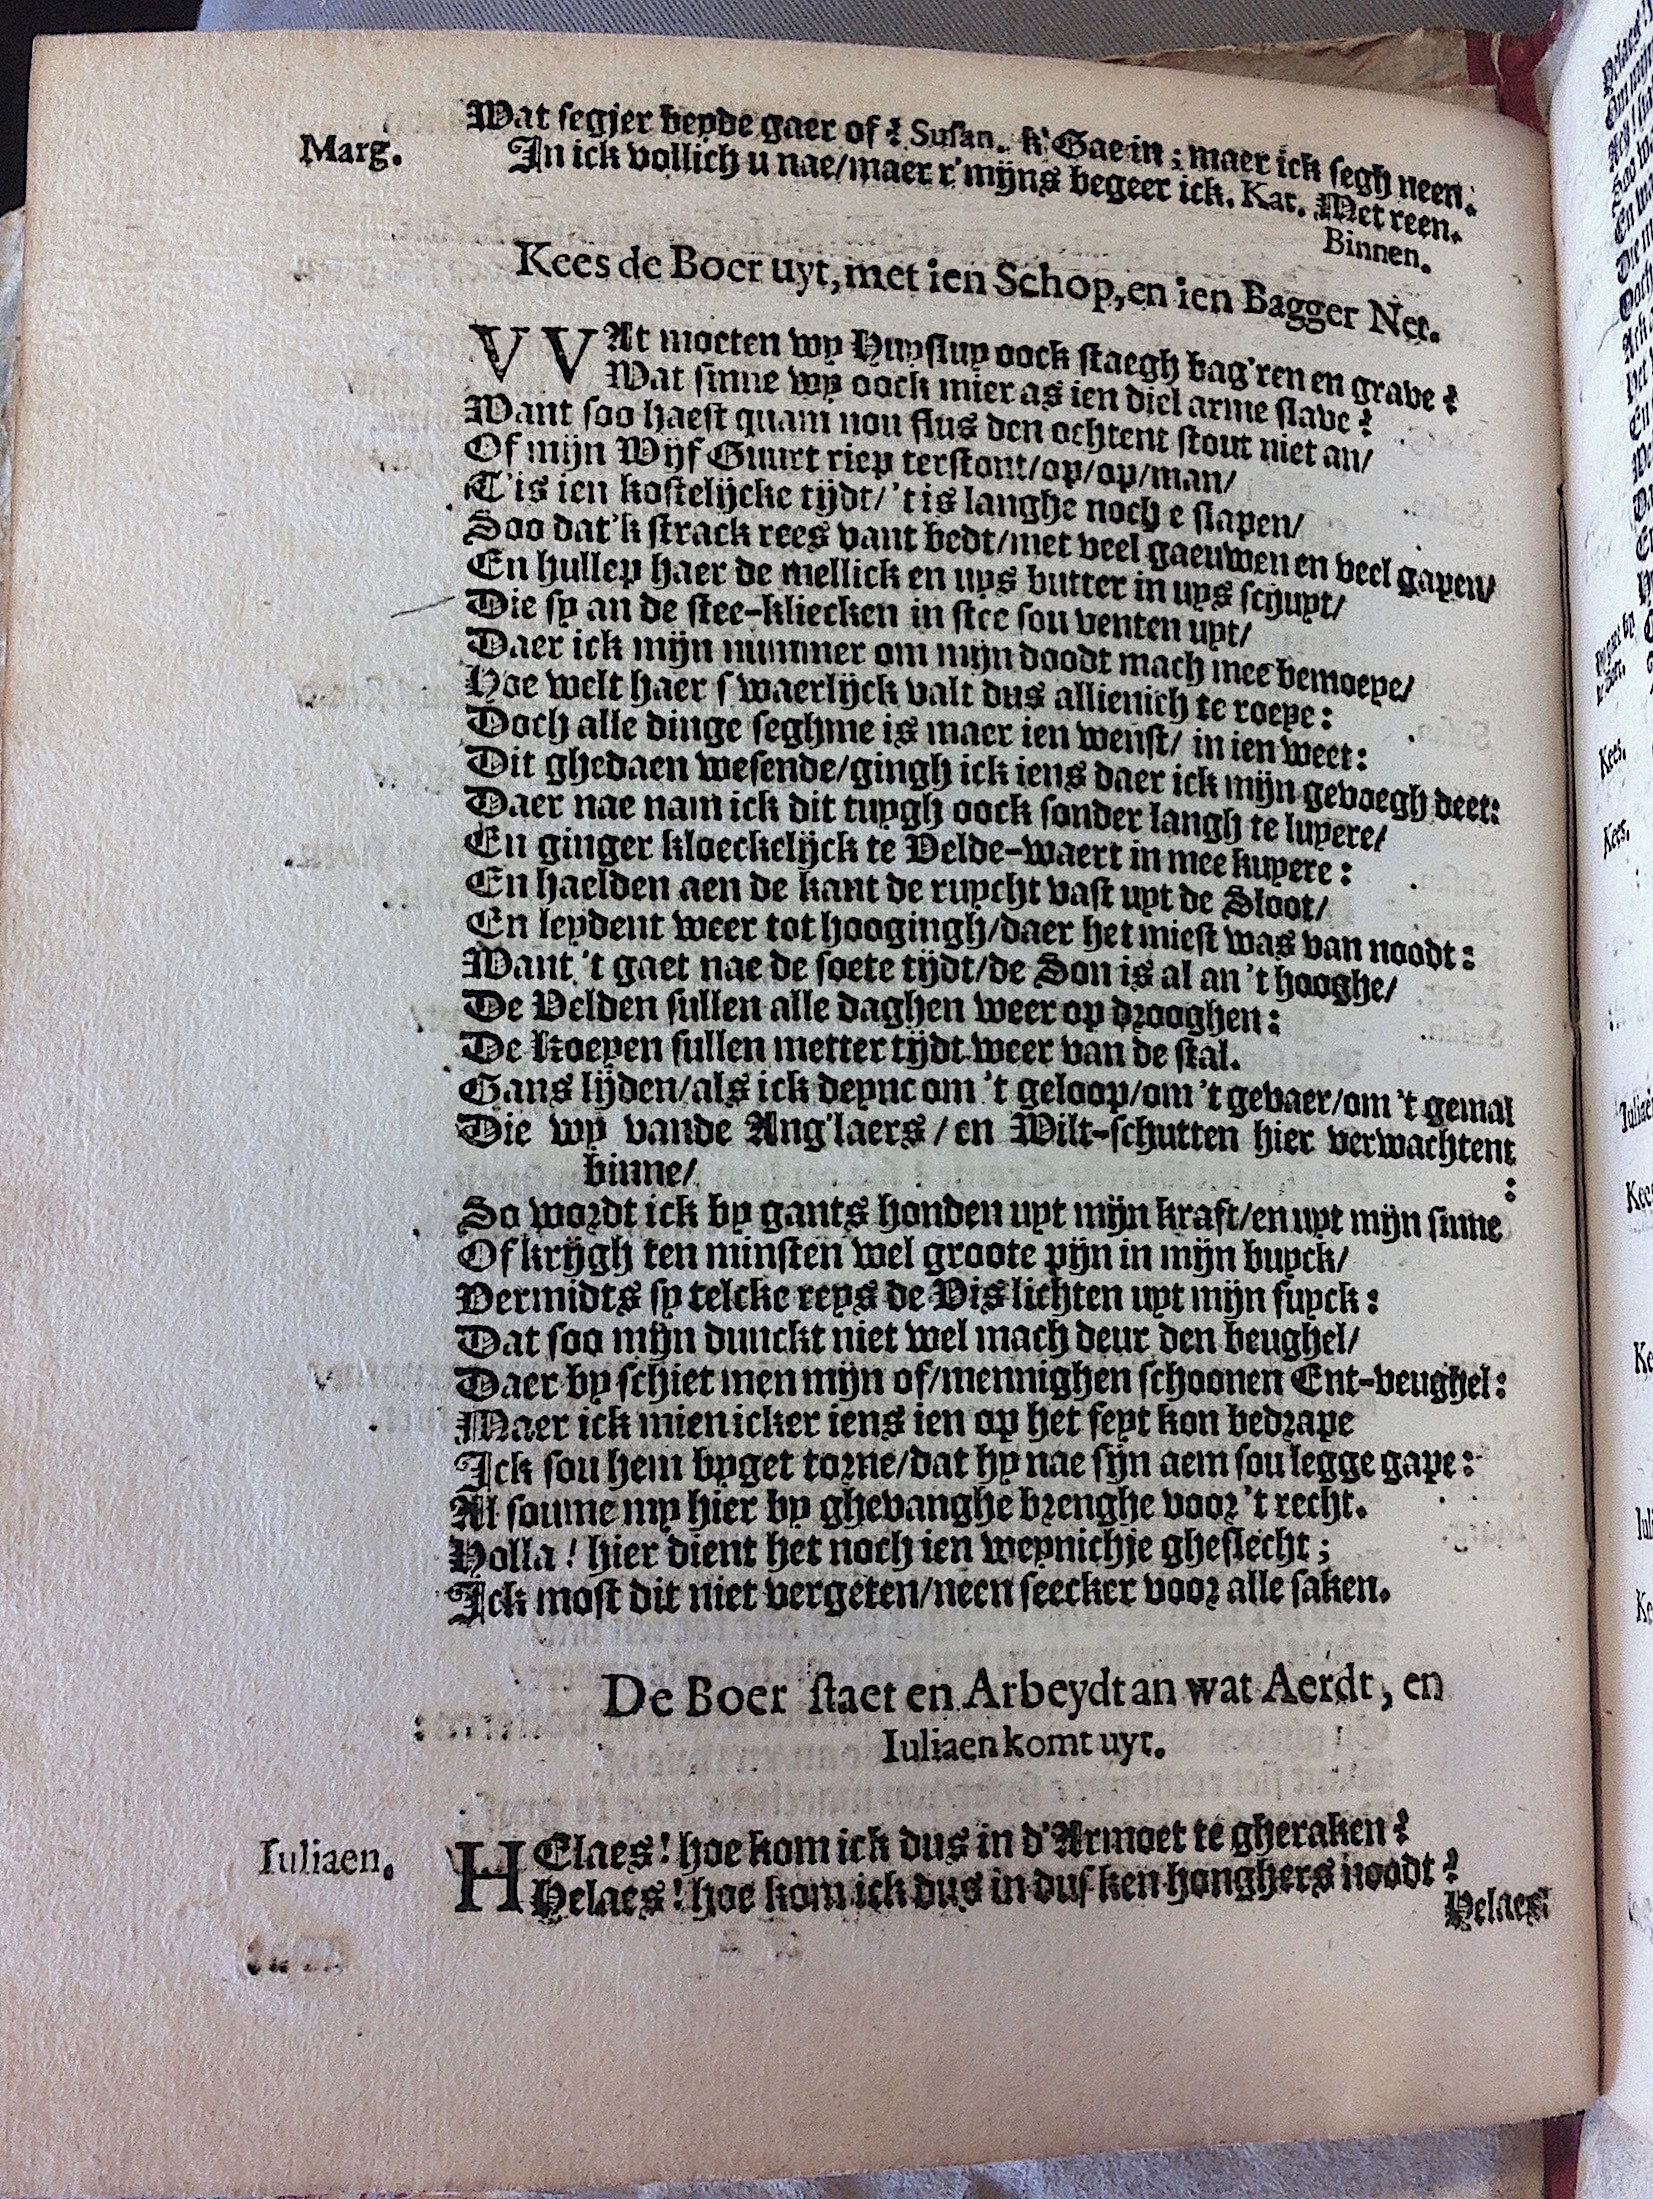 Wat segjer beyde gaer of? Susan. k'Gae in; maer ick segh neen.
Marg. In ick vollich u nae/maer r'mijns begeer ick. Kat. Met reen.
Binnen.
Kees de Boer uyt, met ien Schop, en ien Bagger Net.
VVAt moeten wy Huysluy oock staegh bag'ren en grave?
Wat sinne wy oock mier as ien diel arme slave?
Want soo haest quam nou flus den ochtent stout niet an/
Of mijn Wijf Guurt riep terstont/op/op/man/
T'is ien kostelijcke tijdt/'t is langhe noch e slapen/
Soo dat'k strack rees vant bedt/met veel gaeuwen en veel gapen/
En hullep haer de mellick en uys butter in uys schuyt/
Die sy an de stee-kliecken in stee sou venten uyt/
Daer ick mijn nummer om mijn doodt mach mee bemoeye/
Hoe welt haer swaerlijck valt dus allienich te roeye:
Doch alle dinge seghme is maer ien wenst/ in ien weet:
Dit ghedaen wesende/gingh ick iens daer ick mijn gevoegh deet:
Daer nae nam ick dit tuygh oock sonder langh te luyere/
En ginger kloeckelijck te Velde-waert in mee kuyere:
En haelden aen de kant de ruycht vast uyt de Sloot/
En leydent weer tot hoogingh/daer het miest was van noodt:
Want 't gaet nae de soete tijdt/de Son is al an 't hooghe/
De Velden sullen alle daghen weer op drooghen:
De Koeyen sullen metter tijdt weer van de stal.
Gans lijden/als ick deync om 't geloop/om 't gevaer/om 't gemal
Die wy vande Ang'laers/en Wilt-schutten hier verwachtent
binne/ :
So wordt ick by gants honden uyt mijn kraft/en uyt mijn sinne
Of krijgh ten minsten wel groote pijn in mijn buyck/
Vermidts sy telcke reys de Vis lichten uyt mijn fuyck:
Dat soo mijn dunckt niet wel mach deur den beughel/
Daer by schiet men mijn of/mennighen schoonen Ent-veughel:
Maer ick mien icker iens ien op het feyt kon bedrape
Ick sou hem byget torne/dat hy nae sijn aem sou legge gape:
Al soume my hier by ghevanghe brenghe voor 't recht.
Holla! hier dient het noch ien weynichje gheslecht;
Ick most dit niet vergeten/neen seecker voor alle saken.
De Boer staet en Arbeydt an wat Aerdt, en
Iuliaen komt uyt.
Iuliaen. HElaes! hoe kom ick dus in d'Armoet te gheraken?
Helaes! hoe kom ick dus in dusken honghers noodt?
Helaes!